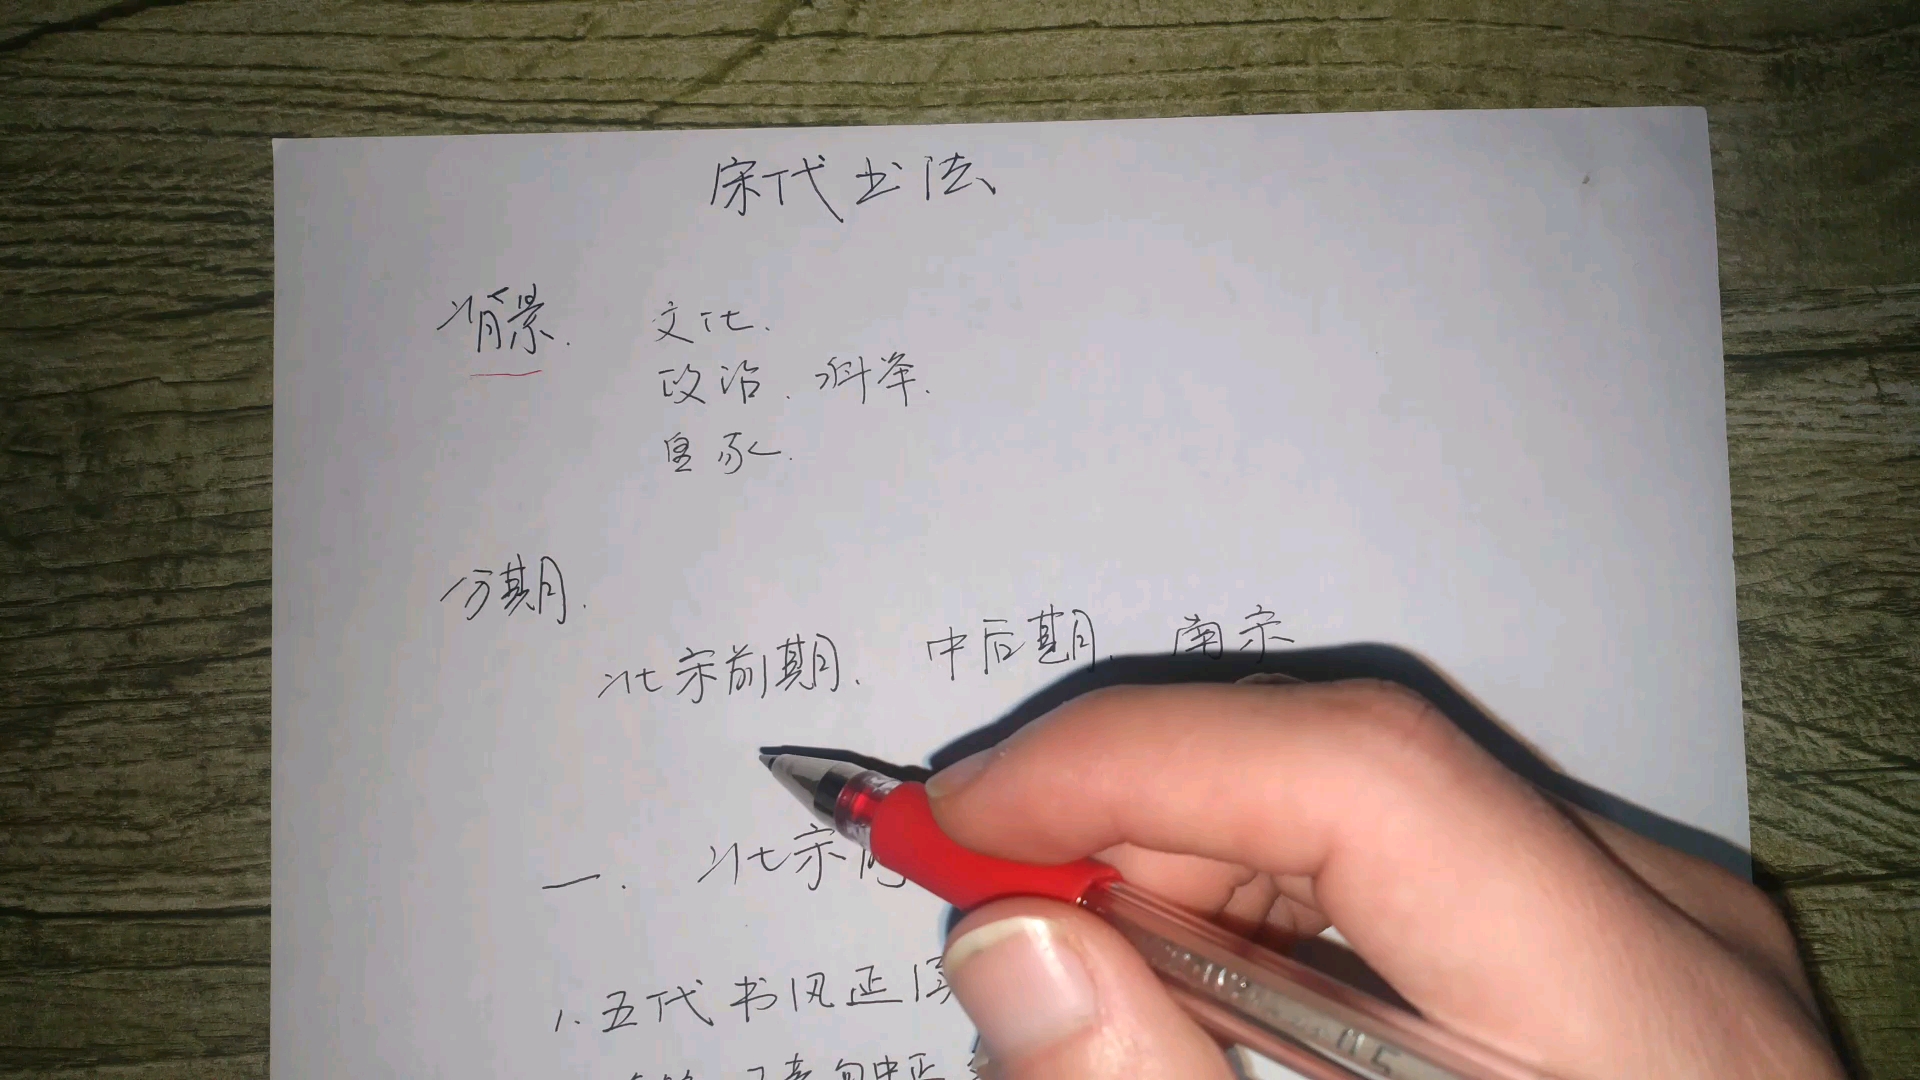 宋代书法
背景. 文化.
政治. 科举.
皇家.
分期.
北宋前期. 中后期. 南宋
一. 北宋前
1. 五代书风延续
句中正